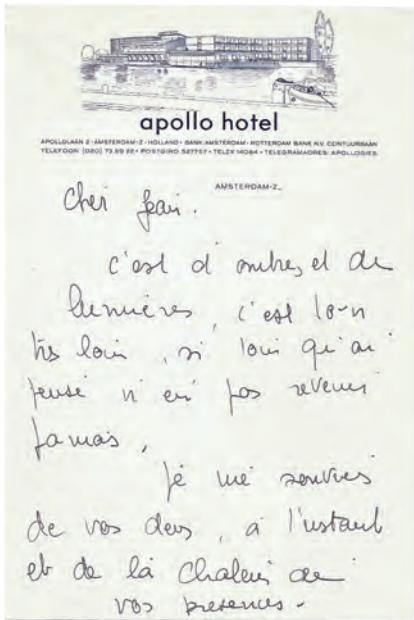 apollo hotel
APOLLOLAAN 2 • AMSTERDAM-Z • HOLLAND • BANK: AMSTERDAM - ROTTERDAM BANK N.V. CEINTUURBAAN
TELEFOON (020) 73 59 22 • POSTGIRO 527757 • TELEX 14084 • TELEGRAMADRES: APOLLOGIES
AMSTERDAM-Z.,
Cher Jean.
c'est d'ombres et de
lumières, c'est loin
très loin, si loin qu'ai
pensé n'en pas revenir
jamais,
je me souviens
de vos deux, à l'instant
et de la chaleur de
vos présences.